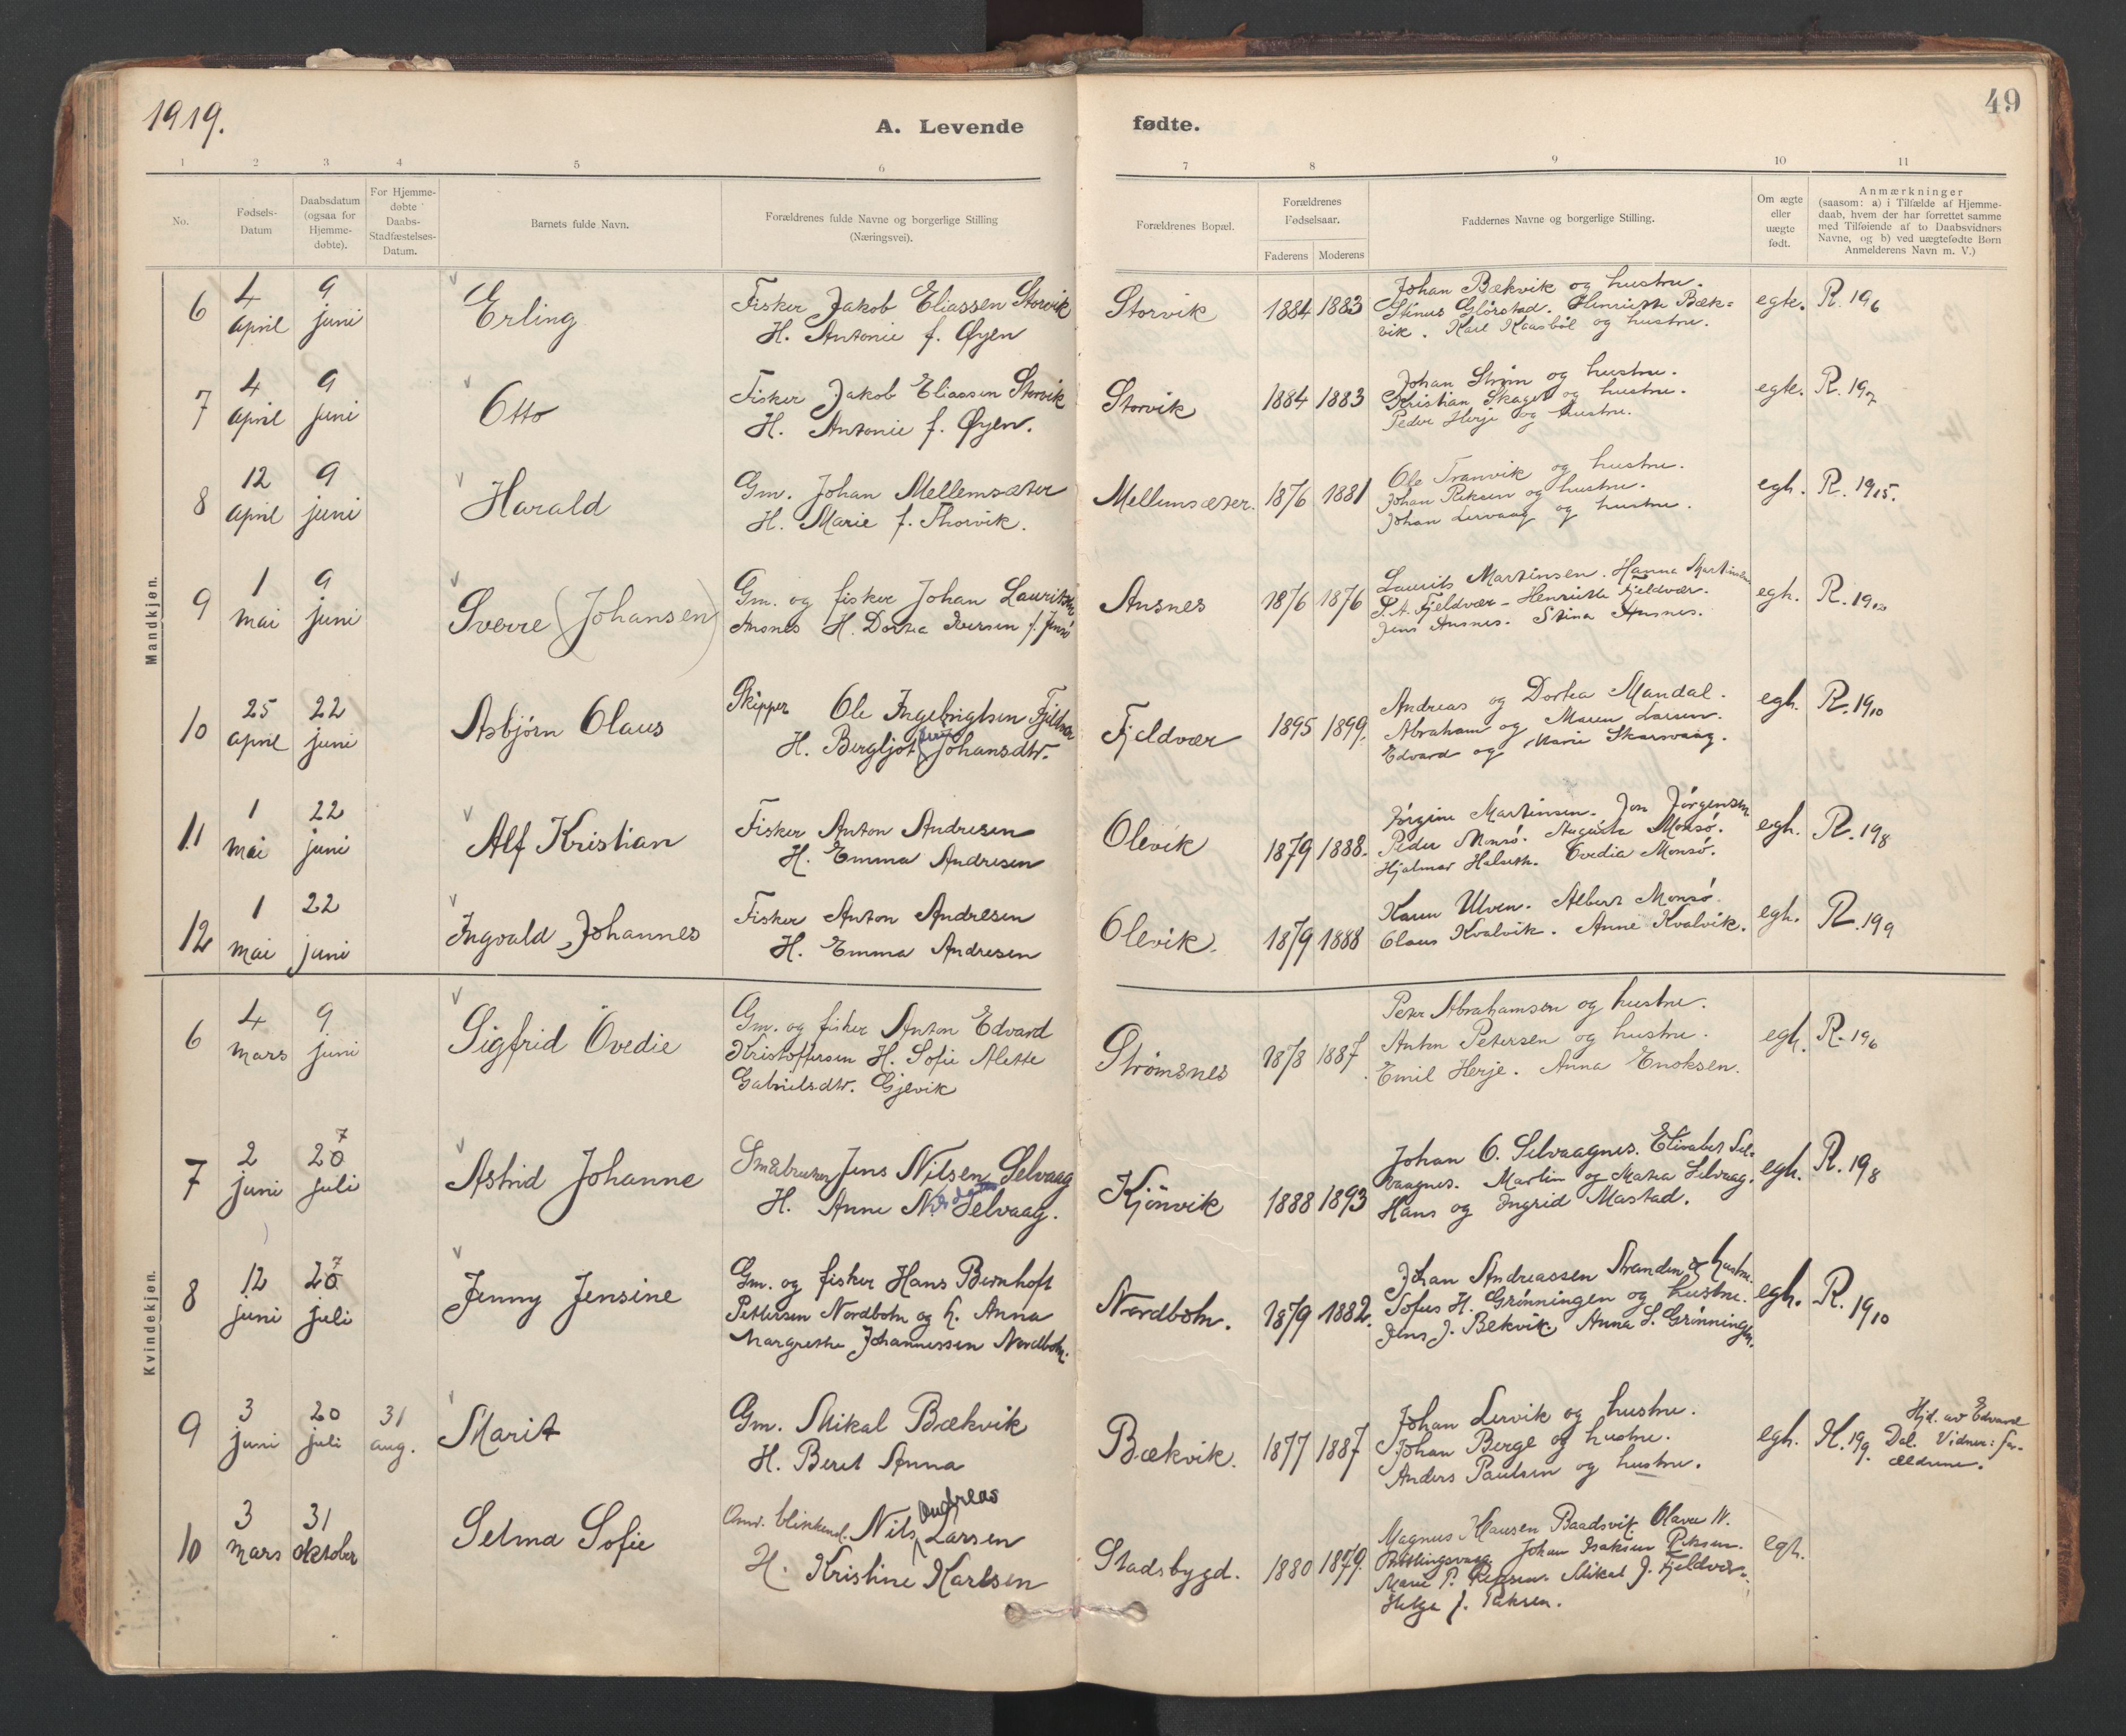 1919.
A. Levende fødte.
49
1 2 3 4 5 6 7 8 9 10 11
No.
Fødsels-
Datum
Daabsdatum
(ogsaa for
Hjemme-
døbte).
For Hjemme-
døbte
Daabs-
Stadfæstelses-
Datum.
Barnets fulde Navn.
Forældrenes fulde Navne og borgerlige Stilling
(Næringsvei).
Forældrenes Bopæl.
Forældrenes
Fødselsaar.
Faderens Moderens
Faddernes Navne og borgerlige Stilling.
Om ægte
eller
uægte
født.
Anmærkninger
(saasom: a) i Tilfælde af Hjemme-
daab, hvem der har forrettet samme
med Tilføiende af to Daabsvidners
Navne, og b) ved uægtefødte Børn
Anmelderens Navn m. V.)
Mandkjøn.
6
4
april
9
juni
Erling
Fisker Jakob Eliassen Storvik
H. Antonie f. Øyen
Storvik
1884 1883
Johan Bækvik og hustru.
Stinus Glørstad. Henriette Bæk-
vik. Karl Kaasbøl og hustru.
egte.
R. 19 6
7
4
april
9
juni
Otto
Fisker Jakob Eliassen Storvik
H. Antonie f. Øyen.
Storvik
1884 1883
Johan Strøm og hustru.
Kristian Skaget og hustru.
Peder Herje og hustru.
egte.
R. 19 7
8
12
april
9
juni
Harald
Gm. Johan Mellemsæter
H. Marie f. Thorvik.
Mellemsæter.
1876 1881
Ole Tranvik og hustru.
Johan Riksen og hustru.
Johan Lervaag og hustru.
egh.
R. 19 15.
9
1
mai
9
juni
Sverre (Johansen)
Gm. og fisker Johan Lauritsen
Ansnes H. Dortea Iversen f. Jensø
Ansnes
1876 1876
Laurits Martinsen. Hanna Martinsen
Fjeldvær - Henriette Fjeldvær.
Jens Ansnes. Stina Ansnes.
egh.
R. 19 10
10
25
april
22
juni
Asbjørn Olaus
Skipper Ole Ingebrigtsen Fjeldvær
H. Bergljot Johansdtr.
Fjeldvær
1895 1899.
Andreas og Dortea Mandal.
Abraham og Maren Larsen.
Edvard og Marie Skarsvaag.
egh.
R. 19 10
11
1
mai
22
juni
Alf Kristian
Fisker Anton Andresen
H. Emma Andresen
Olevik
1879 1888.
Jørgine Martinsen. Jon Jørgensen
Peder Monsø. Augusta Monsø.
Hjalmar Halseth. Ovedia Monsø.
egh.
R. 19 8
12
1
mai
22
juni
Ingvald Johannes
Fisker Anton Andresen
H. Emma Andresen
Olevik.
1879 1888
Karen Ulven. Albert Monsø.
Olaus Kvalvik. Anne Kvalvik.
egh.
R. 19 9
Kvindekjøn.
6
4
mars
9
juni
Sigfrid Övedie
Gm. og fisker Anton Edvard
Kristoffersen H. Sofie Alette
Gabrielsdtr. Gjevik
Strømsnes
1878 1887
Peter Abrahamsen og hustru.
Anton Petersen og hustru.
Emil Herje. Anna Enoksen.
egh.
R. 19 6
7
2
juni
7
20
juli
Astrid Johanne
Småbruker Jens Nilsen Selvaag
H. Anne Selvaag.
Kjønvik
1888 1893
Johan O. Selvaagnes. Elisabet Sel-
vaagnes. Martin og Marta Selvaag.
Hans og Ingrid Mastad.
egh.
R. 19 8
8
12
juni
7
20
juli
Jenny Jensine
Gm. og fisker Hans Bernhoft
Pettersen Nordbotn og h. Anna
Margrethe Johannessen Nordbotn.
Nordbotn.
1879 1882.
Johan Andreassen Stranden og hustru.
Sofus H. Grønningen og hustru.
Jens J. Bekvik. Anna S. Grønningen.
egh.
R. 19 10
9
3
juni
20
juli
31
aug.
Marit
Gm. Mikal Bækvik
H. Beret Anna
Bækvik.
1877 1887
Johan Lervik og hustru.
Johan Berge og hustru.
Anders Paulsen og hustru.
egh.
H. 19 9.
Hjd. av Edvard
Dal. Vidner: for-
ældrene.
10
3
mars
31
oktober
Selma Sofie
Andreas
Omr. blikkensl. Nils Larsen
H. Kristine Karlsen
Stadsbygd.
1880 1879.
Magnus Hansen Baadsvik. Olava N.
Johan Isaksen
Mikal J. Fjeldvær.
Helga J.
egh.